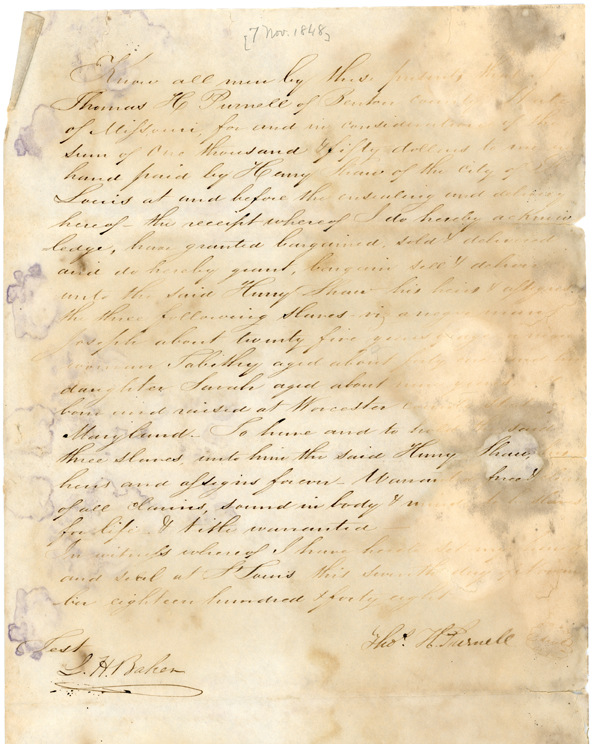 [7 Nov. 1848]
Know all men by these presents that
Thomas H Purnell of Benton county State
of Missouri, for and in consideration of the
sum of One thousand & fifty dollars to me in
hand paid by Henry Shaw of the city of
Louis at and before the ensealing and delivery
hereof – the receipt whereof I do hereby acknow
ledge, have granted bargained, sold & delivered
and do hereby grant, bargain sell & deliver
unto the said Henry Shaw his heirs & assigns
the three following slaves – viz a negro man
Joseph about twenty five years
woman Tabitha aged about
daughter Sarah aged about
born and raised at Worcester
Maryland. – To have and to said
three slaves, unto him the said Henry Shaw, his
heirs and assigns forever – Warranted
of all claims, sound in body & mind
for life & title warranted
In witness whereof I have hereto set my hand
and seal at St Louis this seventh day of Novem
ber eighteen hundred & forty eight
Test
J. H. Baker
Tho.s H. Purnell